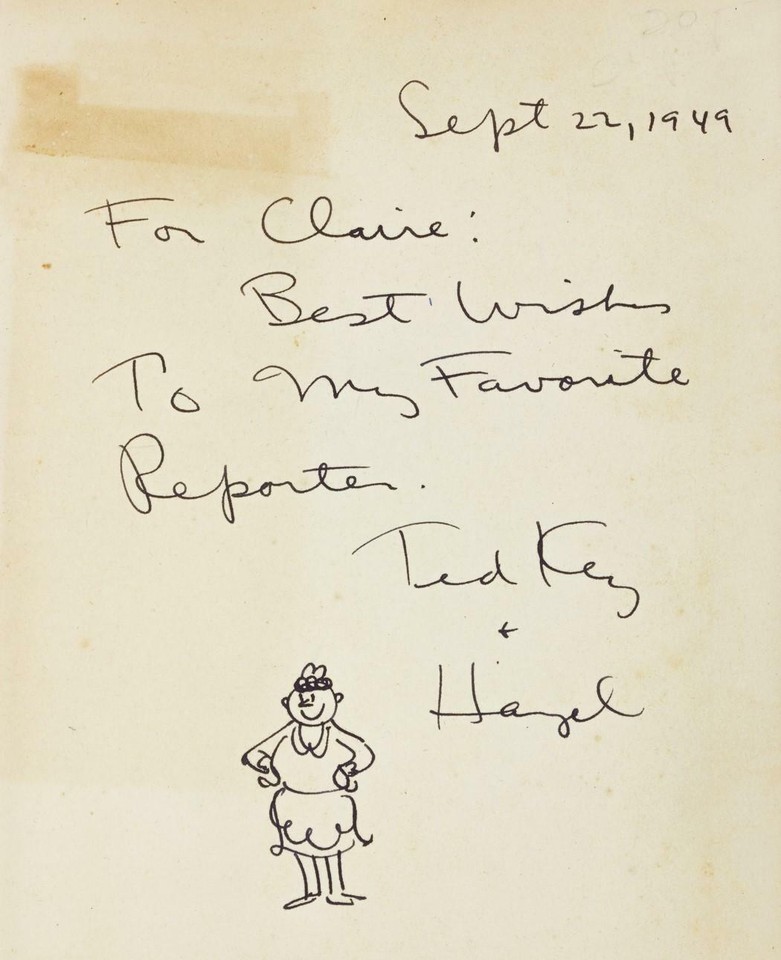 Sept 22, 1949
For Claire:
Best Wishes
To My Favorite
Reporter.
Ted Key
+
Hazel